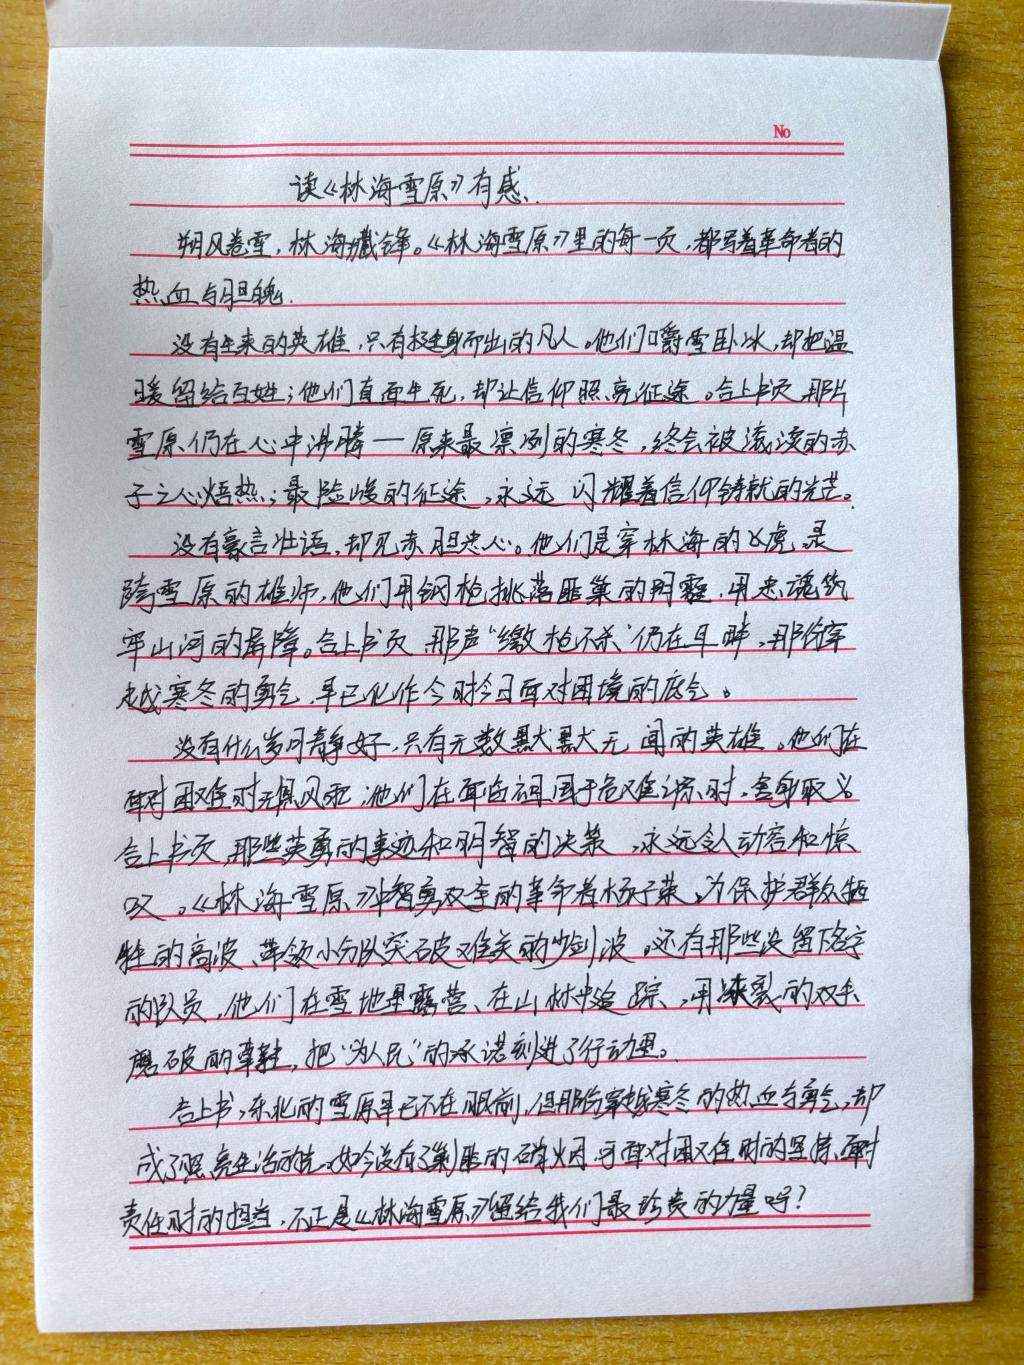 No
读《林海雪原》有感.
朔风卷雪，林海藏锋。《林海雪原》里的每一页，都写着革命者的
热血与胆魄.
没有生来的英雄，只有挺身而出的凡人。他们嚼雪卧冰，却把温
暖留给百姓；他们直面生死，却让信仰照亮征途。合上书页，那片
雪原仍在心中沸腾—原来最凛冽的寒冬，终会被滚滚的赤
子之心焐热；最险峻的征途，永远闪耀着信仰铸就的光芒。
没有豪言壮语，却见赤胆忠心。他们是穿林海的猛虎，是
跨雪原的雄师，他们用钢枪挑落匪巢的阴霾，用忠魂筑
牢山河的屏障。合上书页，那声"缴枪不杀"仍在耳畔，那份穿
越寒冬的勇气，早已化作今时今日面对困境的底气。
没有什么岁月静好，只有无数默默无闻的英雄。他们在
面对困难时无惧风雨；他们在面临祖国于危难之际时，舍身取义
合上书页，那些英勇的事迹和明智的决策，永远令人动容和惊
叹。《林海雪原》中智勇双全的革命者杨子荣、为保护群众牺
牲的高波、带领小分队突破难关的少剑波。还有那些没留下名字
的队员，他们在雪地里露营、在山林中追踪，用冻裂的双手
磨破的草鞋，把"为人民"的承诺刻进了行动里。
合上书，东北的雪原早已不在眼前，但那份穿越寒冬的热血与勇气，却
成了照亮生活的光。如今没有了剿匪的硝烟，可面对困难时的坚持、面对
责任时的担当，不正是《林海雪原》留给我们最珍贵的力量吗？